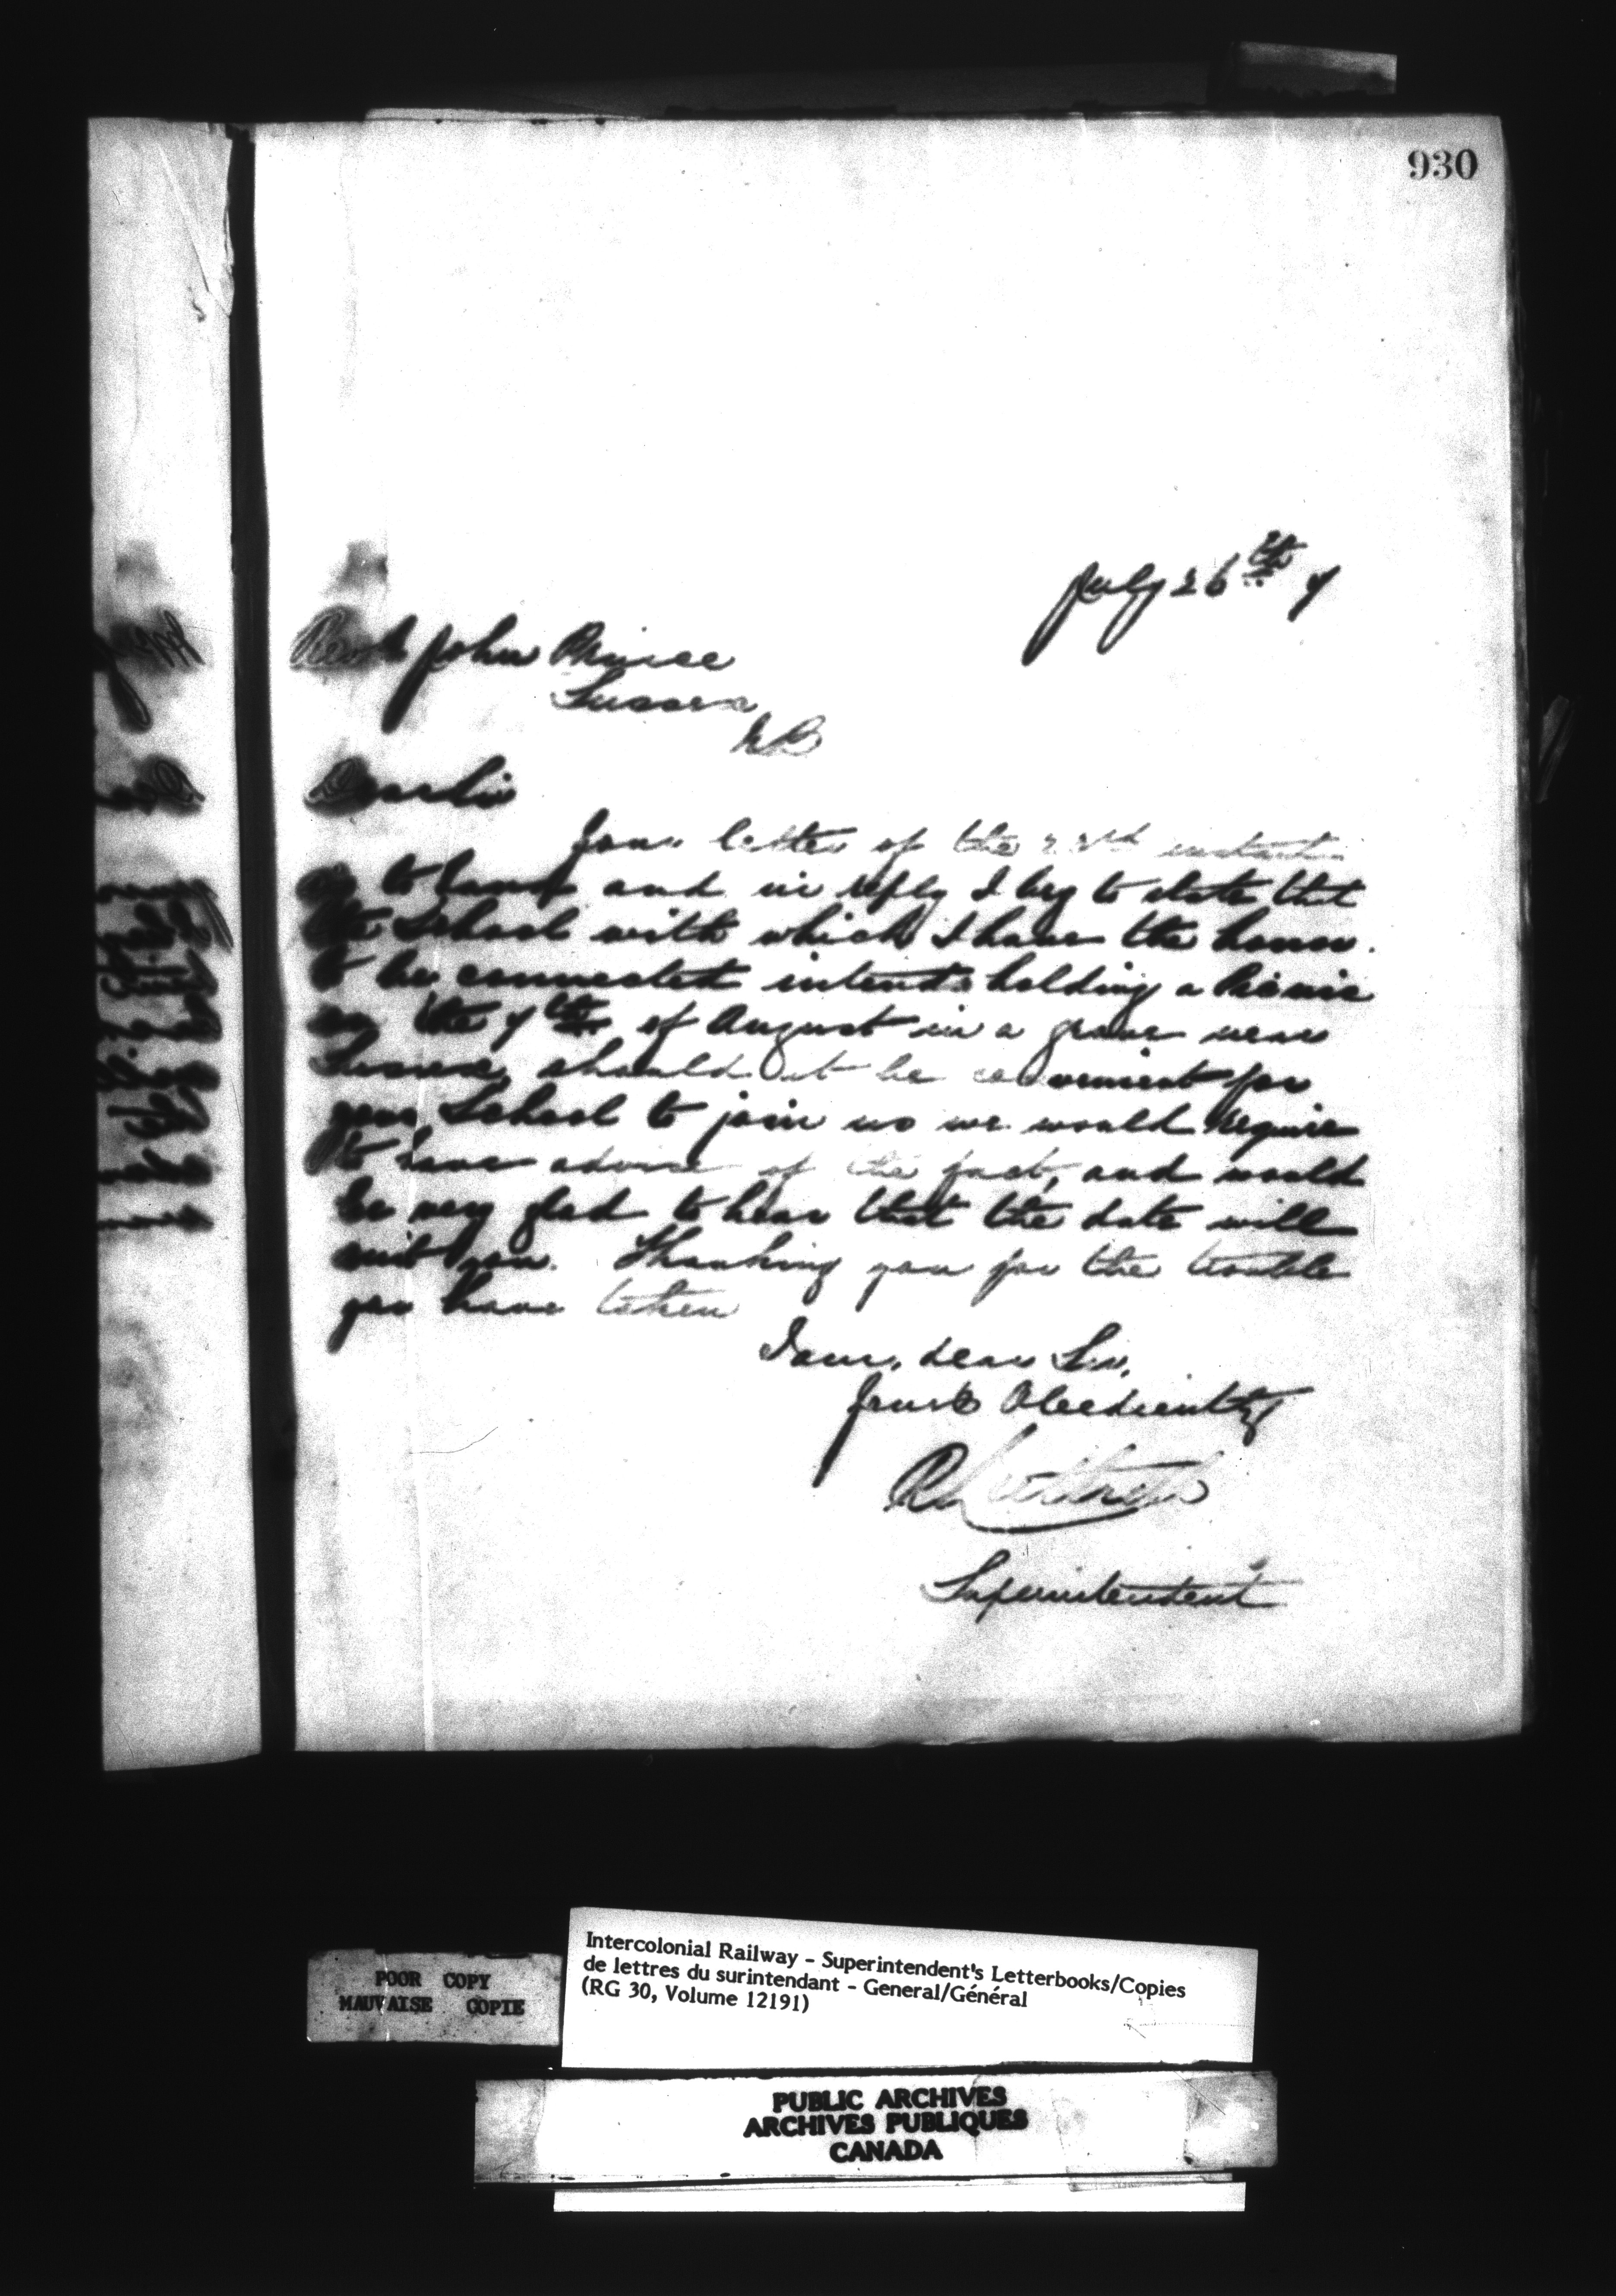 930
July 26th 7
Revd John Prince
Sussex
NB
Dear Sir
Your letter of the instant
is to hand and in reply I beg to state that
the School with which I have the honor
to be connected intends holding a Picnic
on the 7th of August in a grove near
Sussex, should it be convenient for
your School to join us we would require
to have advice of the fact, and would
be very glad to hear that the date will
suit you. Thanking you for the trouble
you have taken
I am, dear Sir,
Yours Obediently
Superintendent
POOR COPY
MAUVAISE COPIE
Intercolonial Railway - Superintendent's Letterbooks/Copies
de lettres du surintendant - General/Général
(RG 30, Volume 12191)
PUBLIC ARCHIVES
ARCHIVES PUBLIQUES
CANADA